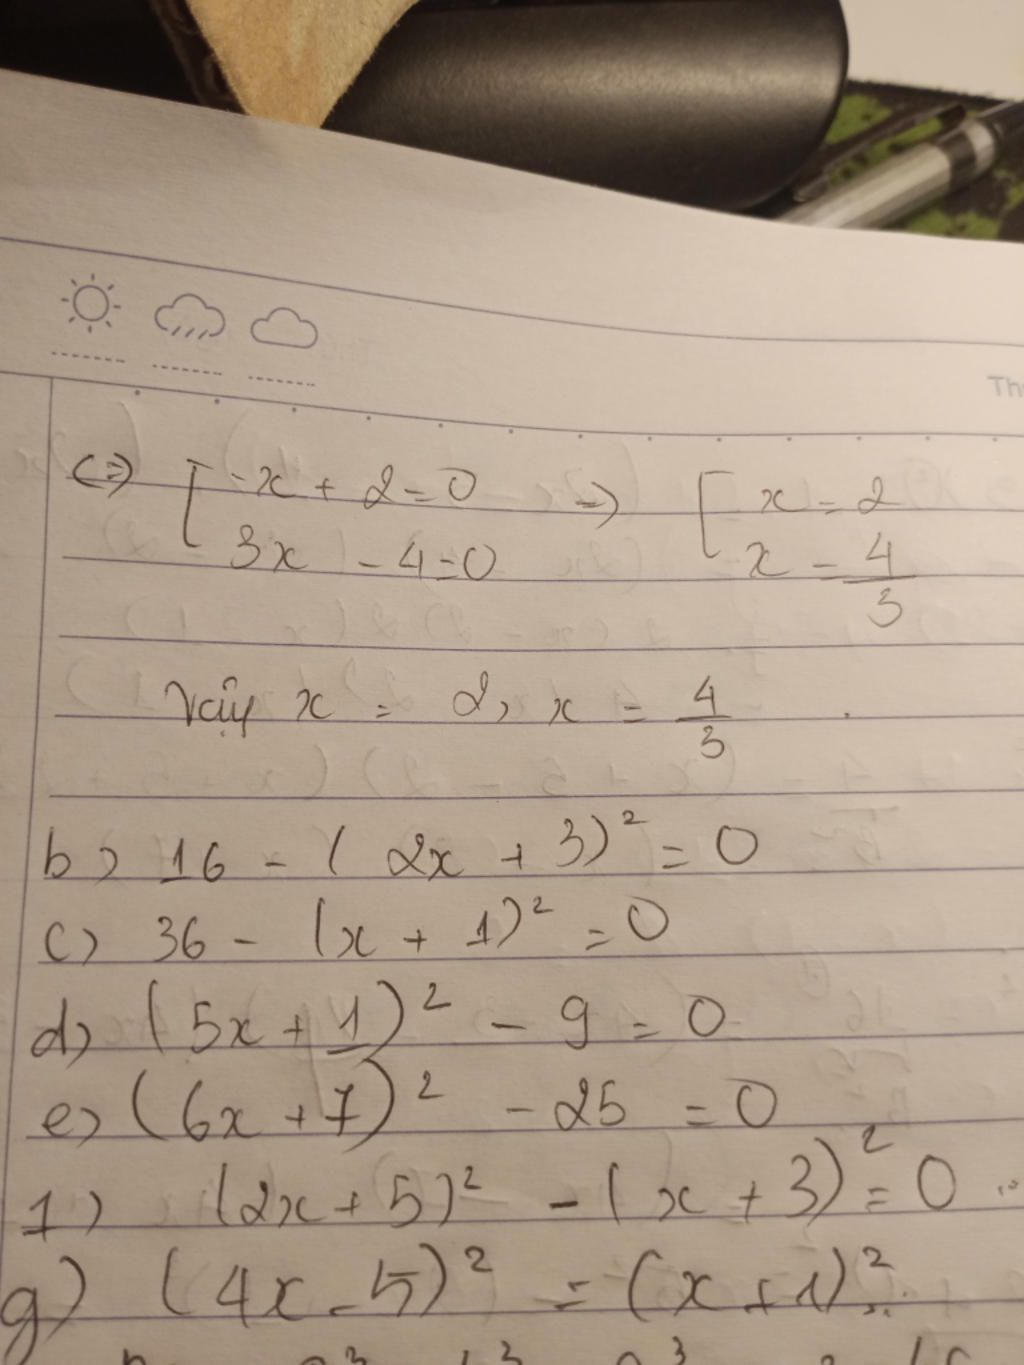 Th
<=> [ -x + 2 = 0 => [ x = 2
3x - 4 = 0 x = 4/3
Vậy x = 2, x = 4/3 .
b) 16 - (2x + 3)² = 0
c) 36 - (x + 1)² = 0
d) (5x + 1)² - 9 = 0
e) (6x + 7)² - 25 = 0
1) (2x + 5)² - (x + 3)² = 0 ..
g) (4x - 5)² = (x + 1)²